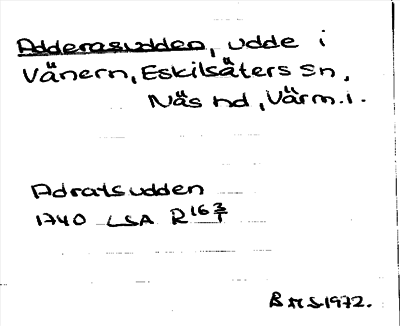 Adderasudden, udde i
Vänern, Eskilsäters sn,
Näs hd, Värm.l.
Adratsudden
1740 LSA R16 3/1
B M S 1972.